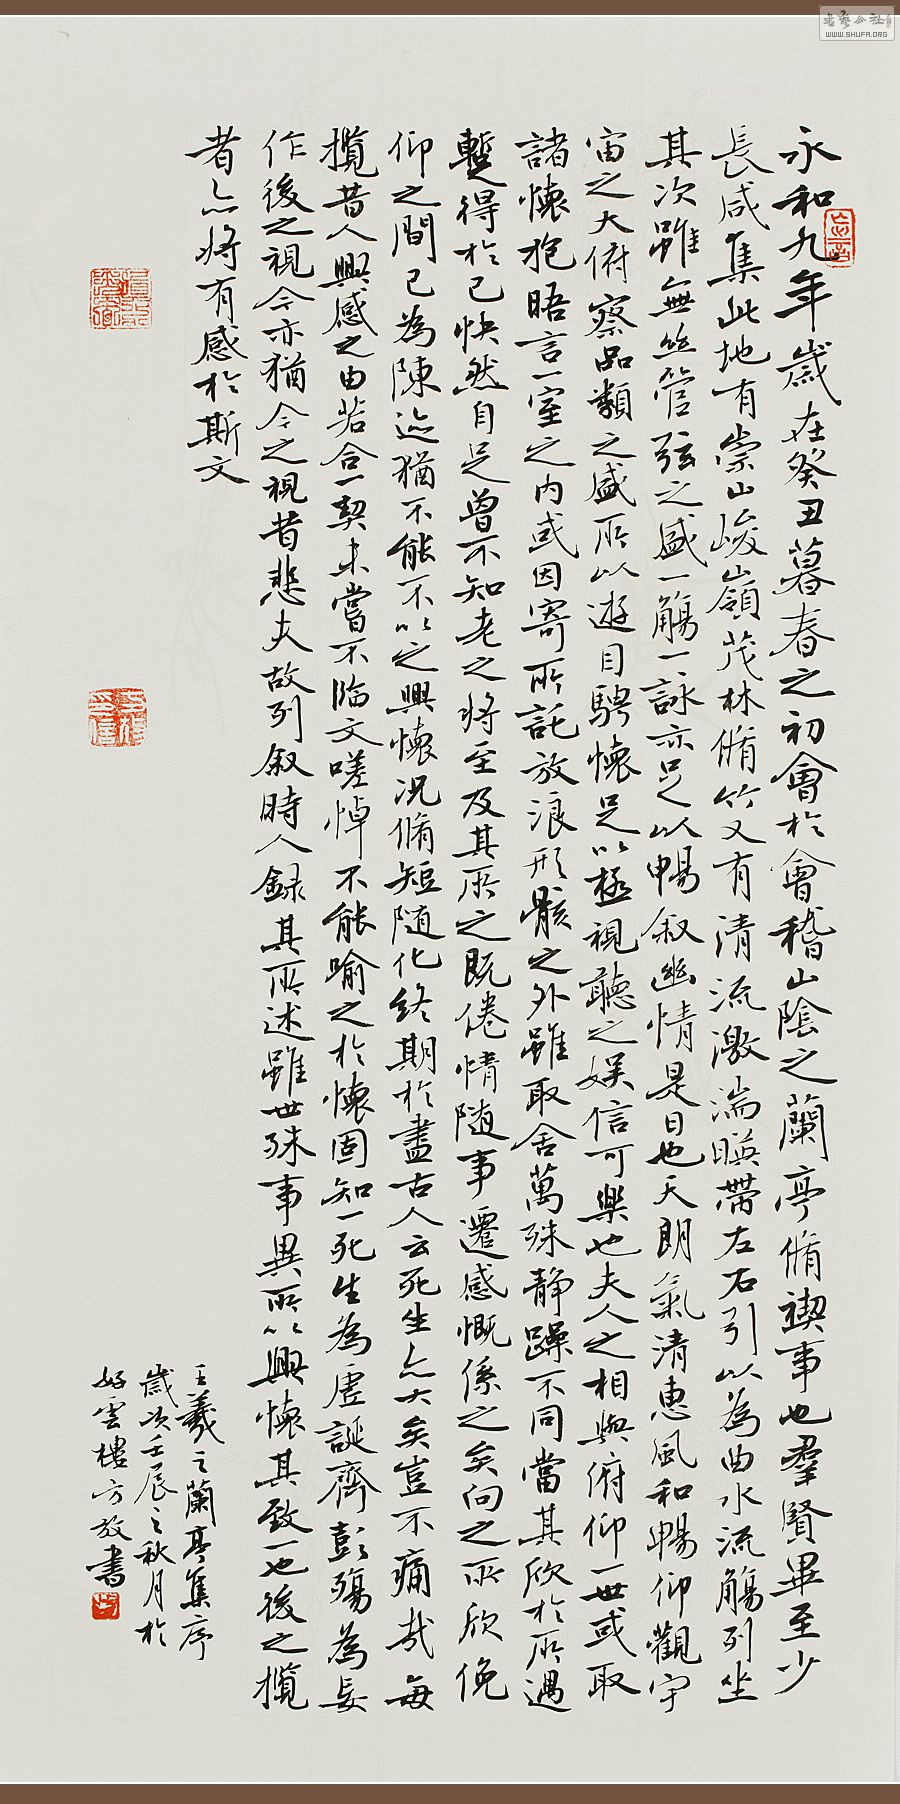 永和九年歲在癸丑暮春之初會於會稽山陰之蘭亭脩禊事也羣賢畢至少
長咸集此地有崇山峻嶺茂林脩竹又有清流激湍暎帶左右引以為曲水流觴列坐
其次雖無絲管弦之盛一觴一詠亦足以暢叙幽情是日也天朗氣清惠風和暢仰觀宇
宙之大俯察品類之盛所以遊目騁懷足以極視聽之娛信可樂也夫人之相與俯仰一世或取
諸懷抱晤言一室之内或因寄所託放浪形骸之外雖取舍萬殊静躁不同當其欣於所遇
暫得於己快然自足曾不知老之將至及其所之既倦情随事遷感慨係之矣向之所欣俛
仰之間已為陳迹猶不能不以之興懷况脩短随化終期於盡古人云死生亦大矣豈不痛哉每
攬昔人興感之由若合一契未嘗不臨文嗟悼不能喻之於懷固知一死生為虛誕齊彭殤為妄
作後之視今亦猶今之視昔悲夫故列叙時人録其所述雖世殊事異所以興懷其致一也後之攬
者亦將有感於斯文
王羲之蘭亭集序
歲次壬辰之秋月於
好雲樓方放書
书艺公社
WWW.SHUFA.ORG